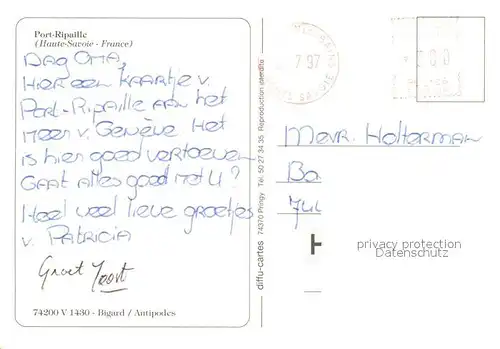 Port-Ripaille
(Haute-Savoie - France)
DAG OMA,
HIER EEN KAARTJE V.
PORT-RIPAILLE AAN HET
MEER V. GENÈVE HET
IS HIER GOED VERTOEVEN
GAAT ALLES GOED MET U?
HEEL VEEL LIEVE GROETJES
V. PATRICIA
Groet Joost
74200 V 1430 - Bigard / Antipodes
diffu-cartes 74370 Pringy Tel. 50 27 34 35 Reproduction interdite
7 97
Mevr. Holterman
Ba
Jul
privacy protection
Datenschutz